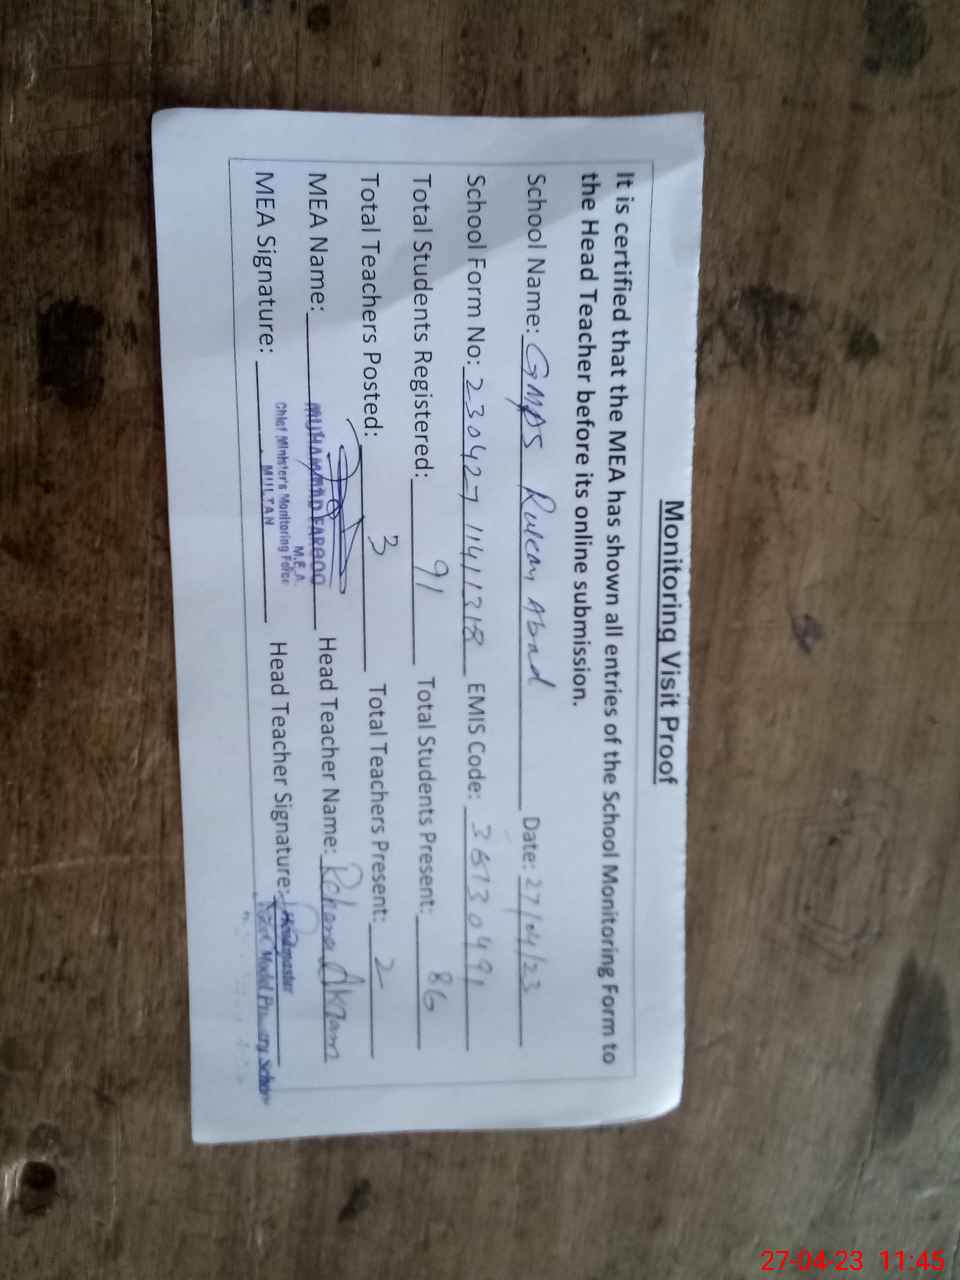 Monitoring Visit Proof
It is certified that the MEA has shown all entries of the School Monitoring Form to
the Head Teacher before its online submission.
School Name: GMPS Abad Date: 27/04/23
School Form No: 230427 11411318 EMIS Code: 36130491
Total Students Registered: 91 Total Students Present: 86
Total Teachers Posted: 3 Total Teachers Present: 2
MEA Name: MUHAMMAD FAROOQ Head Teacher Name: Rehana Akram
M.E.A.
MEA Signature: Chief Minister's Monitoring Force Head Teacher Signature: Headmaster
MULTAN
Govt. Model Primary School
27-04-23 11:45